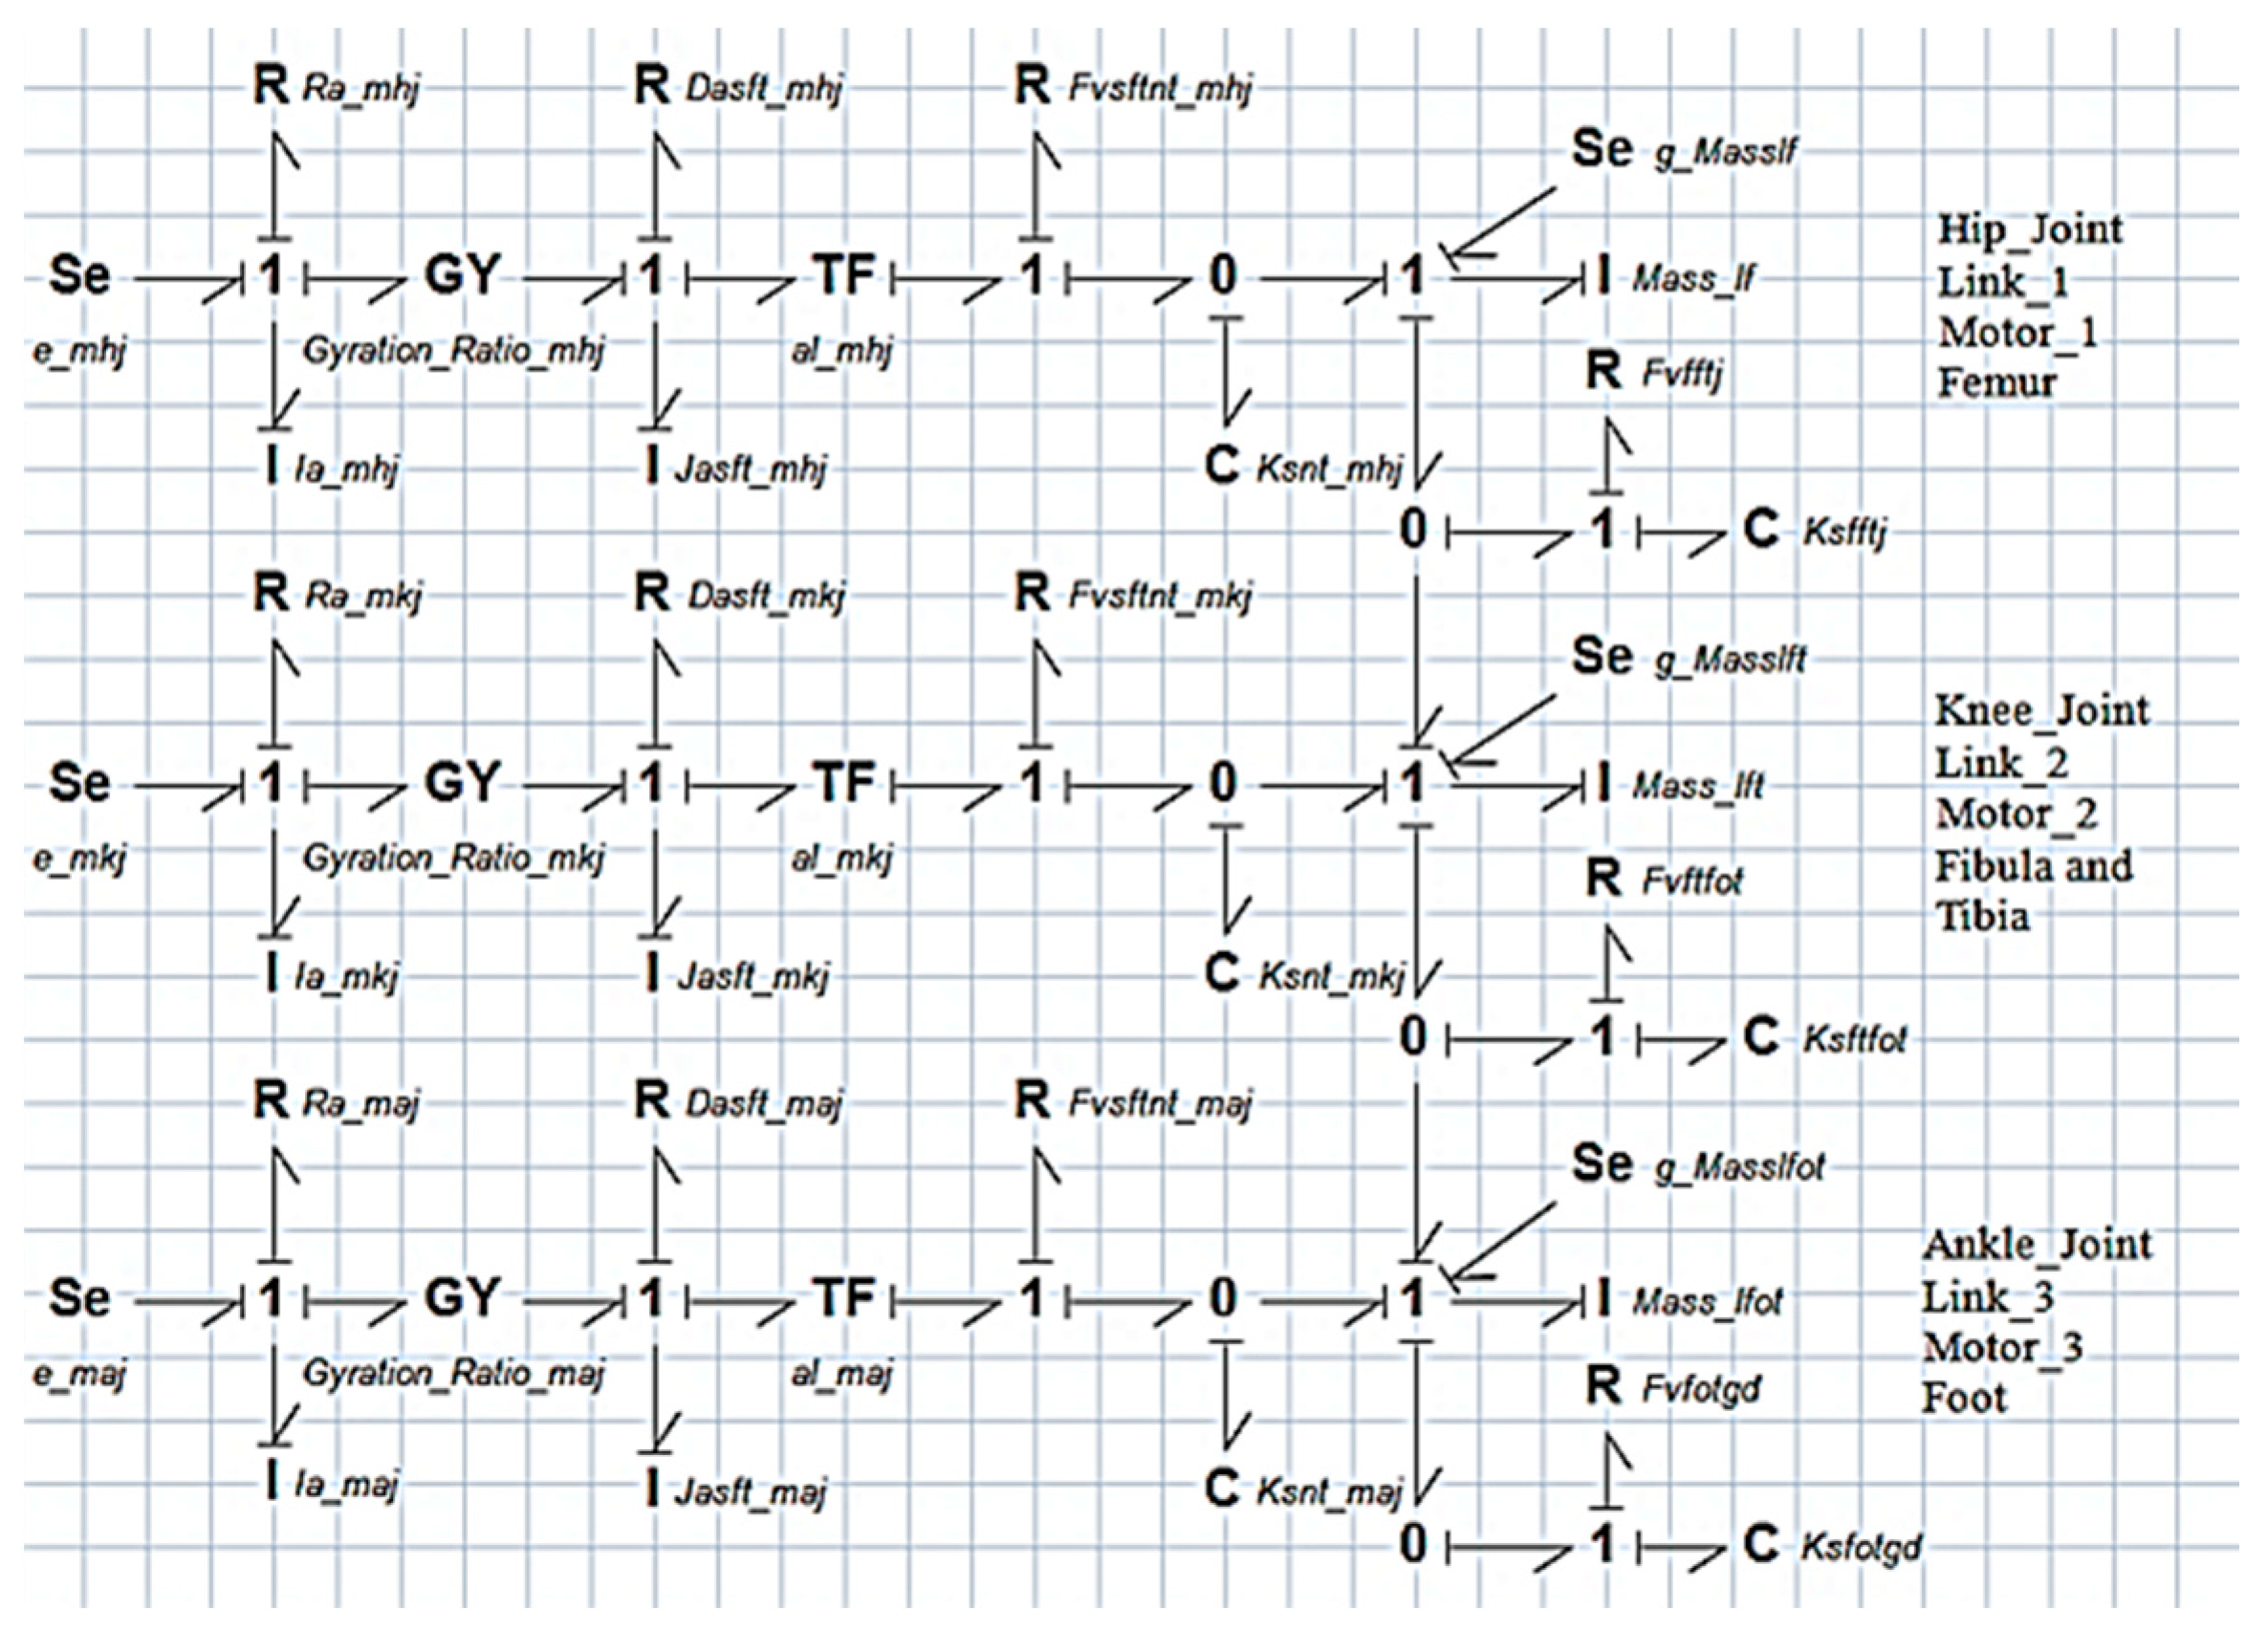 R Ra_mhj R Dasft_mhj R Fvsftnt_mhj
Se g_Masslf
Se 1 GY 1 TF 1 0 1 I Mass_lf
e_mhj Gyration_Ratio_mhj al_mhj
R Fvfftj
I Ia_mhj I Jasft_mhj C Ksnt_mhj
0 1 C Ksfftj
Hip_Joint
Link_1
Motor_1
Femur
R Ra_mkj R Dasft_mkj R Fvsftnt_mkj
Se g_Masslft
Se 1 GY 1 TF 1 0 1 I Mass_lft
e_mkj Gyration_Ratio_mkj al_mkj
R Fvftfot
I Ia_mkj I Jasft_mkj C Ksnt_mkj
0 1 C Ksftfot
Knee_Joint
Link_2
Motor_2
Fibula and
Tibia
R Ra_maj R Dasft_maj R Fvsftnt_maj
Se g_Masslfot
Se 1 GY 1 TF 1 0 1 I Mass_lfot
e_maj Gyration_Ratio_maj al_maj
R Fvfotgd
I Ia_maj I Jasft_maj C Ksnt_maj
0 1 C Ksfotgd
Ankle_Joint
Link_3
Motor_3
Foot